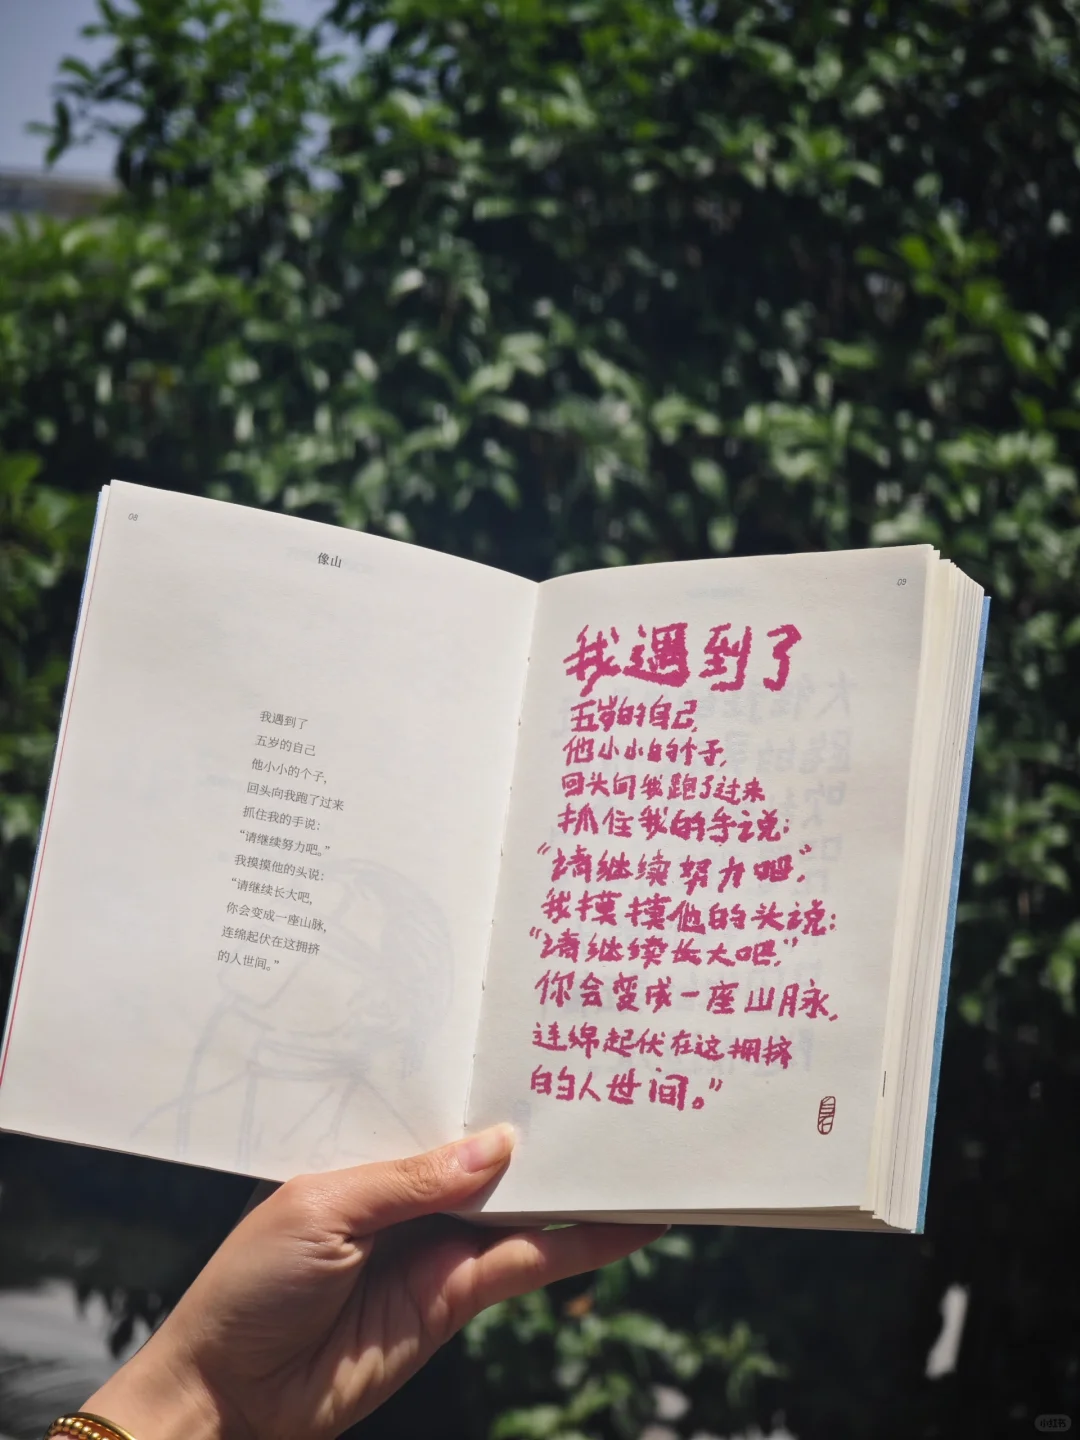 08
像山
我遇到了
五岁的自己
他小小的个子，
回头向我跑了过来
抓住我的手说：
“请继续努力吧。”
我摸摸他的头说：
“请继续长大吧，
你会变成一座山脉，
连绵起伏在这拥挤
的人世间。”
09
我遇到了
五岁的自己，
他小小的个子，
回头向我跑了过来
抓住我的手说：
“请继续努力吧。”
我摸摸他的头说：
“请继续长大吧，”
你会变成一座山脉，
连绵起伏在这拥挤
的人世间。”
小红书